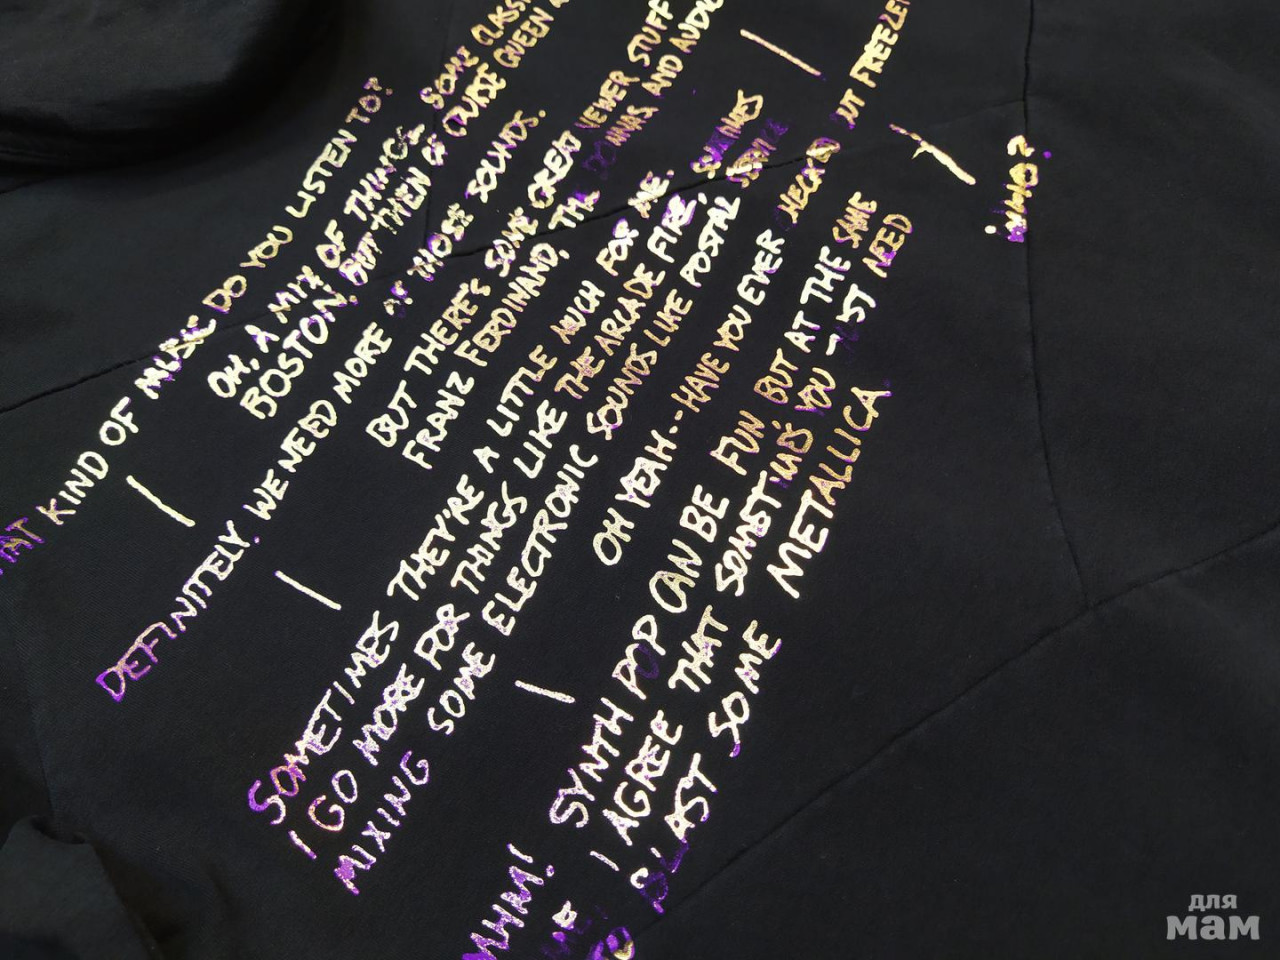 KIND OF MUSIC DO YOU LISTEN TO?
OH, A MIX OF THINGS. SOME CLASSI
BOSTON, BUT THEN OF COURSE QUEEN
DEFINITELY. WE NEED MORE OF THOSE SOUNDS.
BUT THERE'S SOME GREAT NEWER STUFF
FRANZ FERDINAND, THE DONNAS, AND AUDIO
SOMETIMES THEY'RE A LITTLE MUCH FOR ME. SOMETIMES
I GO MORE FOR THINGS LIKE THE ARCADE FIRE,
MIXING SOME ELECTRONIC SOUNDS LIKE POSTAL SERVICE
OH YEAH-- HAVE YOU EVER FREEZE
WHO?
HMM! SYNTH POP CAN BE FUN BUT AT THE SAME
I AGREE THAT SOMETIMES YOU JUST NEED
BLAST SOME METALLICA
для
мам